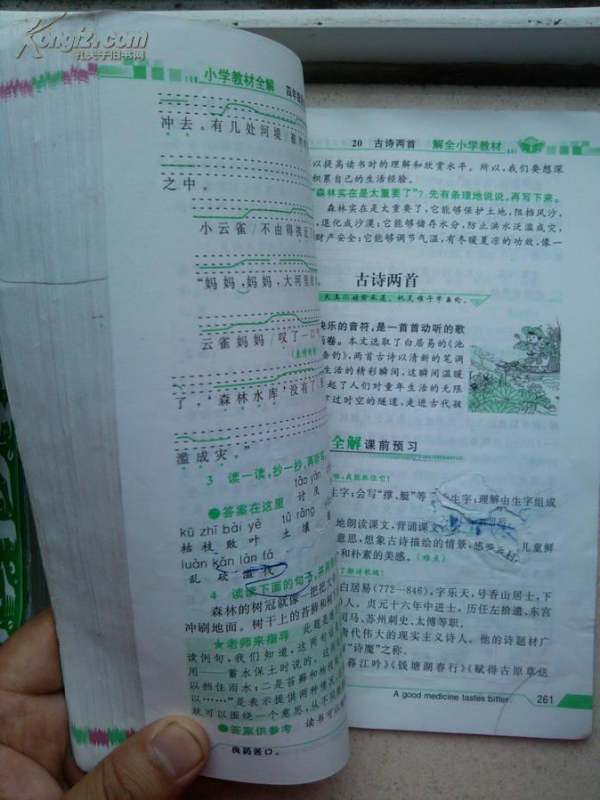 Kongfz.com
孔夫子旧书网
小学教材全解
冲去。有几处河堤
之中。
小云雀/不由得
“妈妈,妈妈,大河里
云雀妈妈/叹了一口
了,‘森林水库’没有了
滥成灾。”
3 读一读,抄一抄,再
●答案在这里
tǎo yàn
kū zhī bài yè
tǔ rǎng
讨厌
枯枝败叶
土壤
luàn kǎn làn fá
乱砍滥伐
4 读读下面的句子,
森林的树冠就像一把把大
冲刷地面。树干上的苔藓和
★老师来指导
读例句,我们知道,这两句
用——蓄水保土时说的,这
以挡住雨水;二是苔藓和
以……”是表示提供两种情况
就可以围绕一个意思,从不同
●答案供参考
读书可以
良药苦口。
20 古诗两首
解全小学教材
以提高读书时的理解和欣赏水平。所以,我们要想深
积累自己的生活经验。
“森林实在是太重要了”?先有条理地说说,再写下来。
森林实在是太重要了,它能够保护土地,阻挡风沙,
退化成沙漠;它能够储存水分,防止洪水泛滥成灾,
财产安全;它能够调节气温,有冬暖夏凉的功效,像一
古诗两首
快乐的音符,是一首首动听的歌
画卷。本文选取了白居易的《池
垂钓》,两首古诗以清新的笔调
生活的精彩瞬间,这瞬间温暖
起了人们对童年生活的无限
过时空的隧道,走进古代孩
全解 课前预习
生字;会写“撑、艇”等
生字;理解由生字组成
地朗读课文,背诵课文
意思,想象古诗描绘的情景,感受
儿童鲜
和朴素的美感。(难点)
白居易(772—846),字乐天,号香山居士,下
人。贞元十六年中进士,历任左拾遗、东宫
司马、苏州刺史、太傅等职。
唐代伟大的现实主义诗人。他的诗题材广
“诗魔”之称。
《暮江吟》《钱塘湖春行》《赋得古原草送
A good medicine tastes bitter.
261